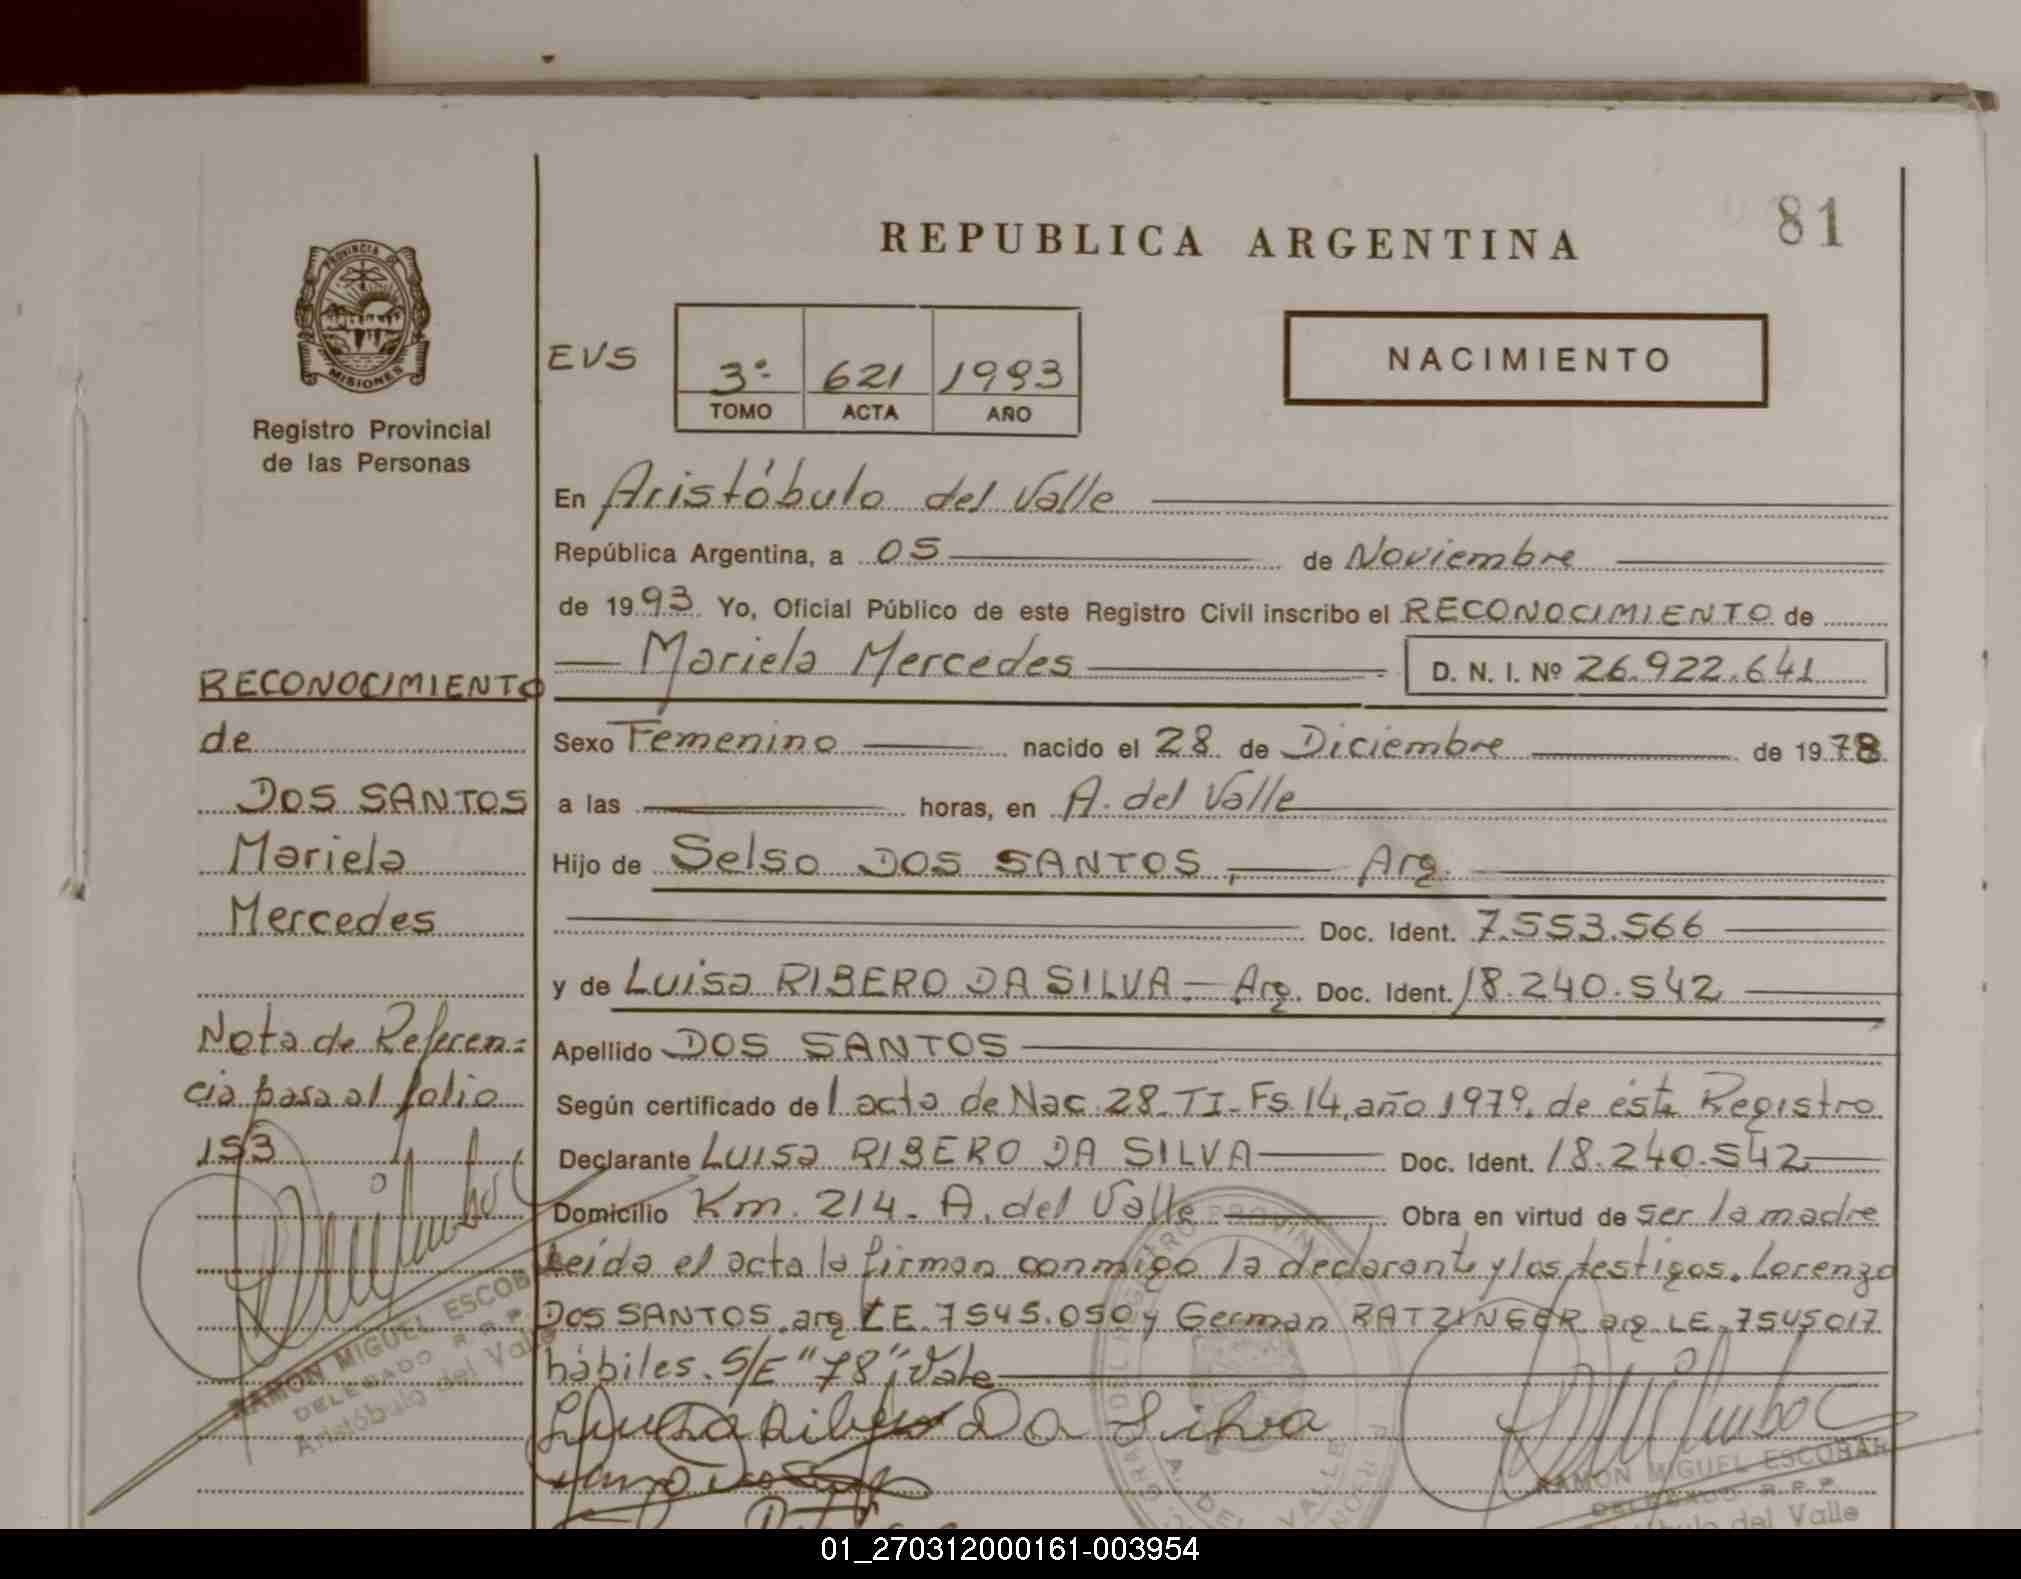 81
REPUBLICA ARGENTINA
PROVINCIA DE
MISIONES
Registro Provincial
de las Personas
EVS
3º 621 1993
TOMO ACTA AÑO
NACIMIENTO
En Aristóbulo del Valle
República Argentina, a 05 de Noviembre
de 1993 Yo, Oficial Público de este Registro Civil inscribo el RECONOCIMIENTO de
Mariela Mercedes D. N. I. Nº 26.922.641
Sexo Femenino nacido el 28 de Diciembre de 1978
a las horas, en A. del Valle
Hijo de Selso DOS SANTOS, Arg.
Doc. Ident. 7.553.566
y de Luisa RIBERO DA SILVA - Arg. Doc. Ident. 18.240.542
Apellido DOS SANTOS
Según certificado de l acta de Nac. 28-TI-Fs.14, año 1979, de ésta Registro
Declarante LUISA RIBERO DA SILVA Doc. Ident. 18.240.542
Domicilio Km. 214. A. del Valle Obra en virtud de ser la madre
Leída el acta la firman conmigo la declarante y los testigos. Lorenzo
DOS SANTOS arg LE. 7545.050 y German RATZINGER arg. LE. 7545017
hábiles. S/E "78"; Vale
RECONOCIMIENTO
de
DOS SANTOS
Mariela
Mercedes
Nota de Referen=
cia pasa al folio
153
RAMON MIGUEL ESCOBAR
DELEGADO R.P.P.
Aristóbulo del Valle
Da Silva
A. DEL VALLE
RAMON MIGUEL ESCOBAR
DELEGADO R.P.P.
del Valle
01_270312000161-003954